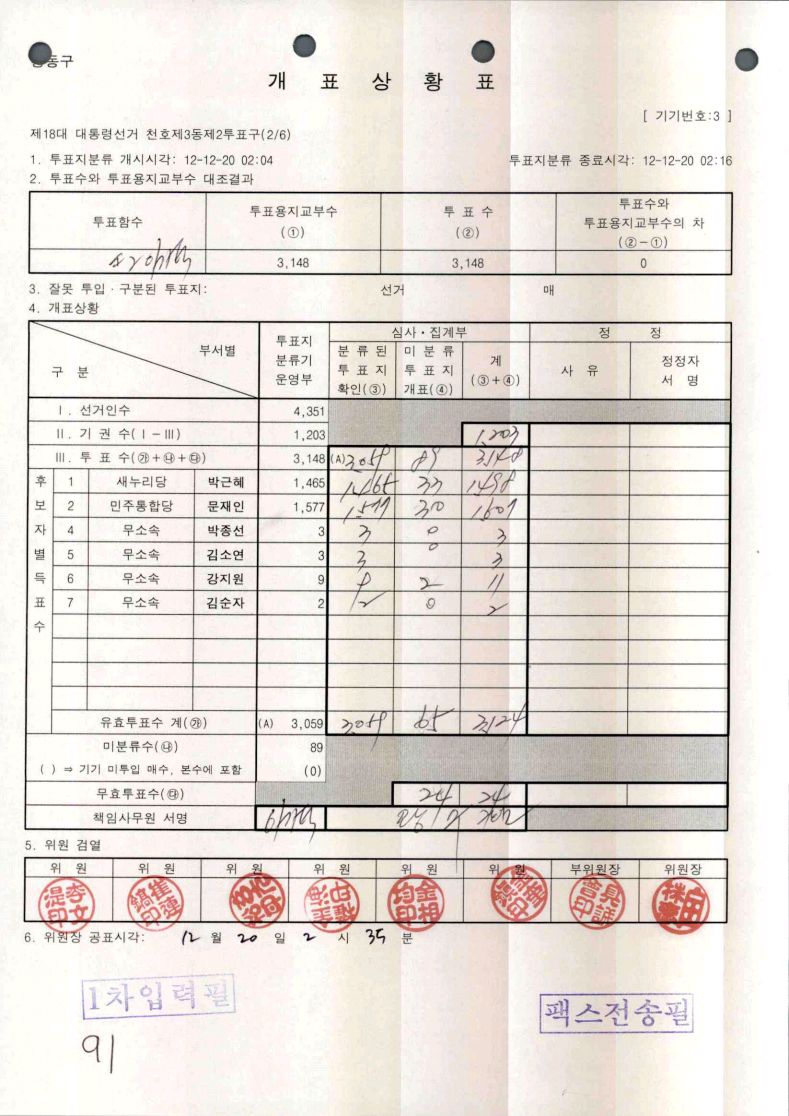 동구
개 표 상 황 표
[ 기기번호:3 ]
제18대 대통령선거 천호제3동제2투표구(2/6)
1. 투표지분류 개시시각: 12-12-20 02:04 투표지분류 종료시각: 12-12-20 02:16
2. 투표수와 투표용지교부수 대조결과
투표함수 투표용지교부수 (①) 투 표 수 (②) 투표수와 투표용지교부수의 차 (②-①)
3,148 3,148 0
3. 잘못 투입·구분된 투표지: 선거 매
4. 개표상황
부서별 구 분 투표지 분류기 운영부 심사·집계부 정 정
분 류 된 투 표 지 확인(③) 미 분 류 투 표 지 개표(④) 계 (③+④) 사 유 정정자 서 명
Ⅰ. 선거인수 4,351
Ⅱ. 기 권 수(Ⅰ-Ⅲ) 1,203 1,203
Ⅲ. 투 표 수(㉮+㉯+㉰) 3,148 (A) 3059 89 3148
후보자별득표수
1 새누리당 박근혜 1,465 1465 33 1498
2 민주통합당 문재인 1,577 1577 30 1607
4 무소속 박종선 3 3 0 3
5 무소속 김소연 3 3 0 3
6 무소속 강지원 9 9 2 11
7 무소속 김순자 2 2 0 2
유효투표수 계(㉮) (A) 3,059 3059 65 3124
미분류수(㉯) 89
( ) ⇒ 기기 미투입 매수, 본수에 포함 (0)
무효투표수(㉰) 24 24
책임사무원 서명
5. 위원 검열
위 원 위 원 위 원 위 원 위 원 위 원 부위원장 위원장
6. 위원장 공표시각: 12 월 20 일 2 시 35 분
1차입력필
팩스전송필
91